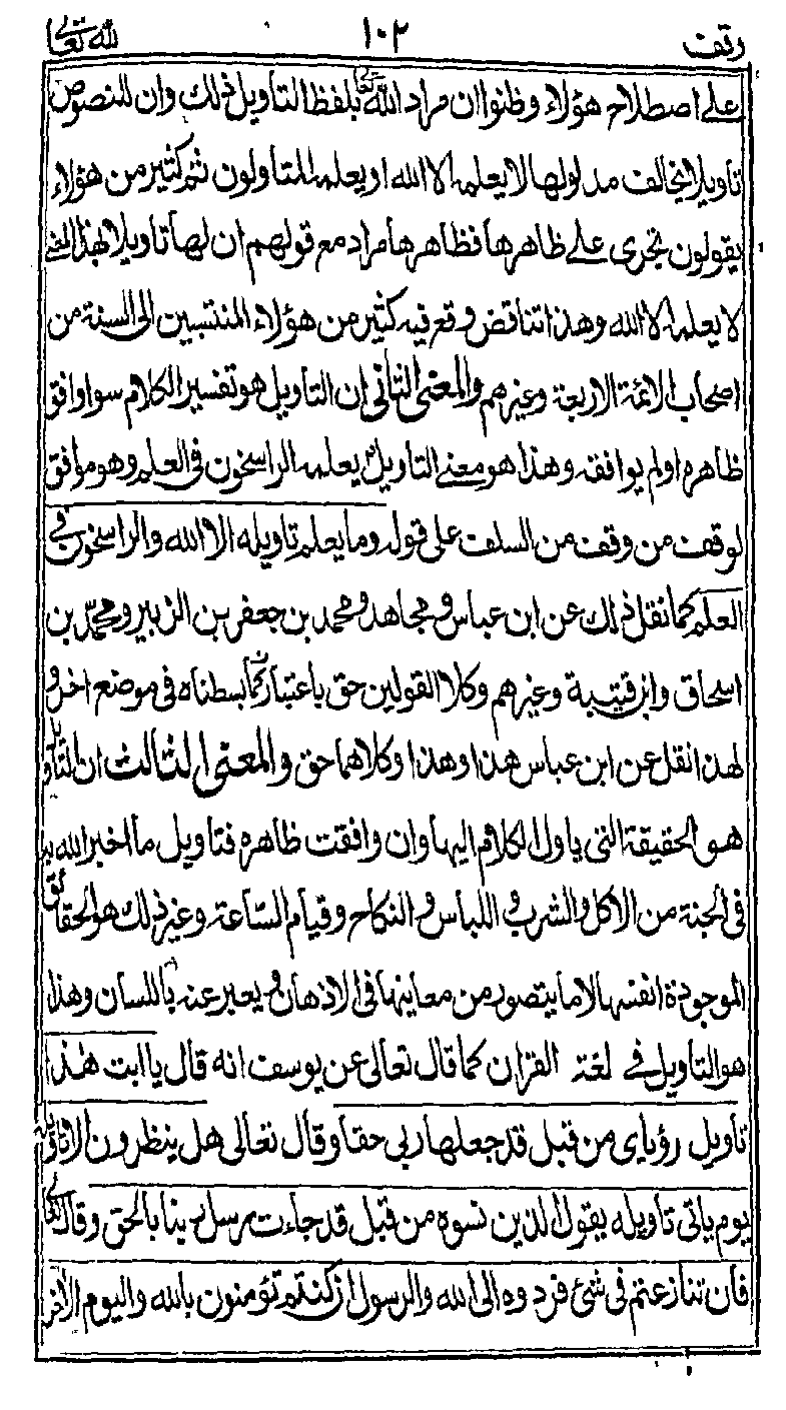 رتف ١٠٢ لله تعالى
على اصطلاح هؤلاء وظنوا ان مراد الله تعالى بلفظ التاويل ذلك وان للنصوص
تاويلا يخالف مدلولها لا يعلمه الا الله او يعلمه المتاولون ثم كثير من هؤلاء
يقولون تجرى على ظاهرها فظاهرها مراد مع قولهم ان لها تاويلا بهذا المعنى
لا يعلمه الا الله وهذا تناقض وقع فيه كثير من هؤلاء المنتسبين الى السنة من
اصحاب الائمة الاربعة وغيرهم والمعنى الثانى ان التاويل هو تفسير الكلام سوا وافق
ظاهره او لم يوافقه وهذا هو معنى التاويل يعلمه الراسخون فى العلم وهو موافق
لوقف من وقف من السلف على قوله وما يعلم تاويله الا الله والراسخون فى
العلم كما نقل ذلك عن ابن عباس ومجاهد ومحمد بن جعفر بن الزبير ومحمد بن
اسحاق وابن قتيبة وغيرهم وكلا القولين حق باعتبار كما بسطناه فى موضع اخر و
لهذا نقل عن ابن عباس هذا وهذا وكلاهما حق والمعنى الثالث ان التاويل
هو الحقيقة التى ياول الكلام اليها وان وافقت ظاهره فتاويل ما اخبر الله به
فى الجنة من الاكل والشرب و اللباس و النكاح وقيام الساعة وغير ذلك هو الحقائق
الموجودة انفسها لا ما يتصور من معانيها فى الاذهان و يعبر عنه باللسان وهذا
هو التاويل فى لغة القران كما قال تعالى عن يوسف انه قال يا ابت هذا
تاويل رؤياى من قبل قد جعلها ربى حقا وقال تعالى هل ينظرون الا تاويله
يوم ياتى تاويله يقول الذين نسوه من قبل قد جاءت رسل ربنا بالحق وقال تعالى
فان تنازعتم فى شئ فردوه الى الله والرسول ان كنتم تؤمنون بالله واليوم الاخر